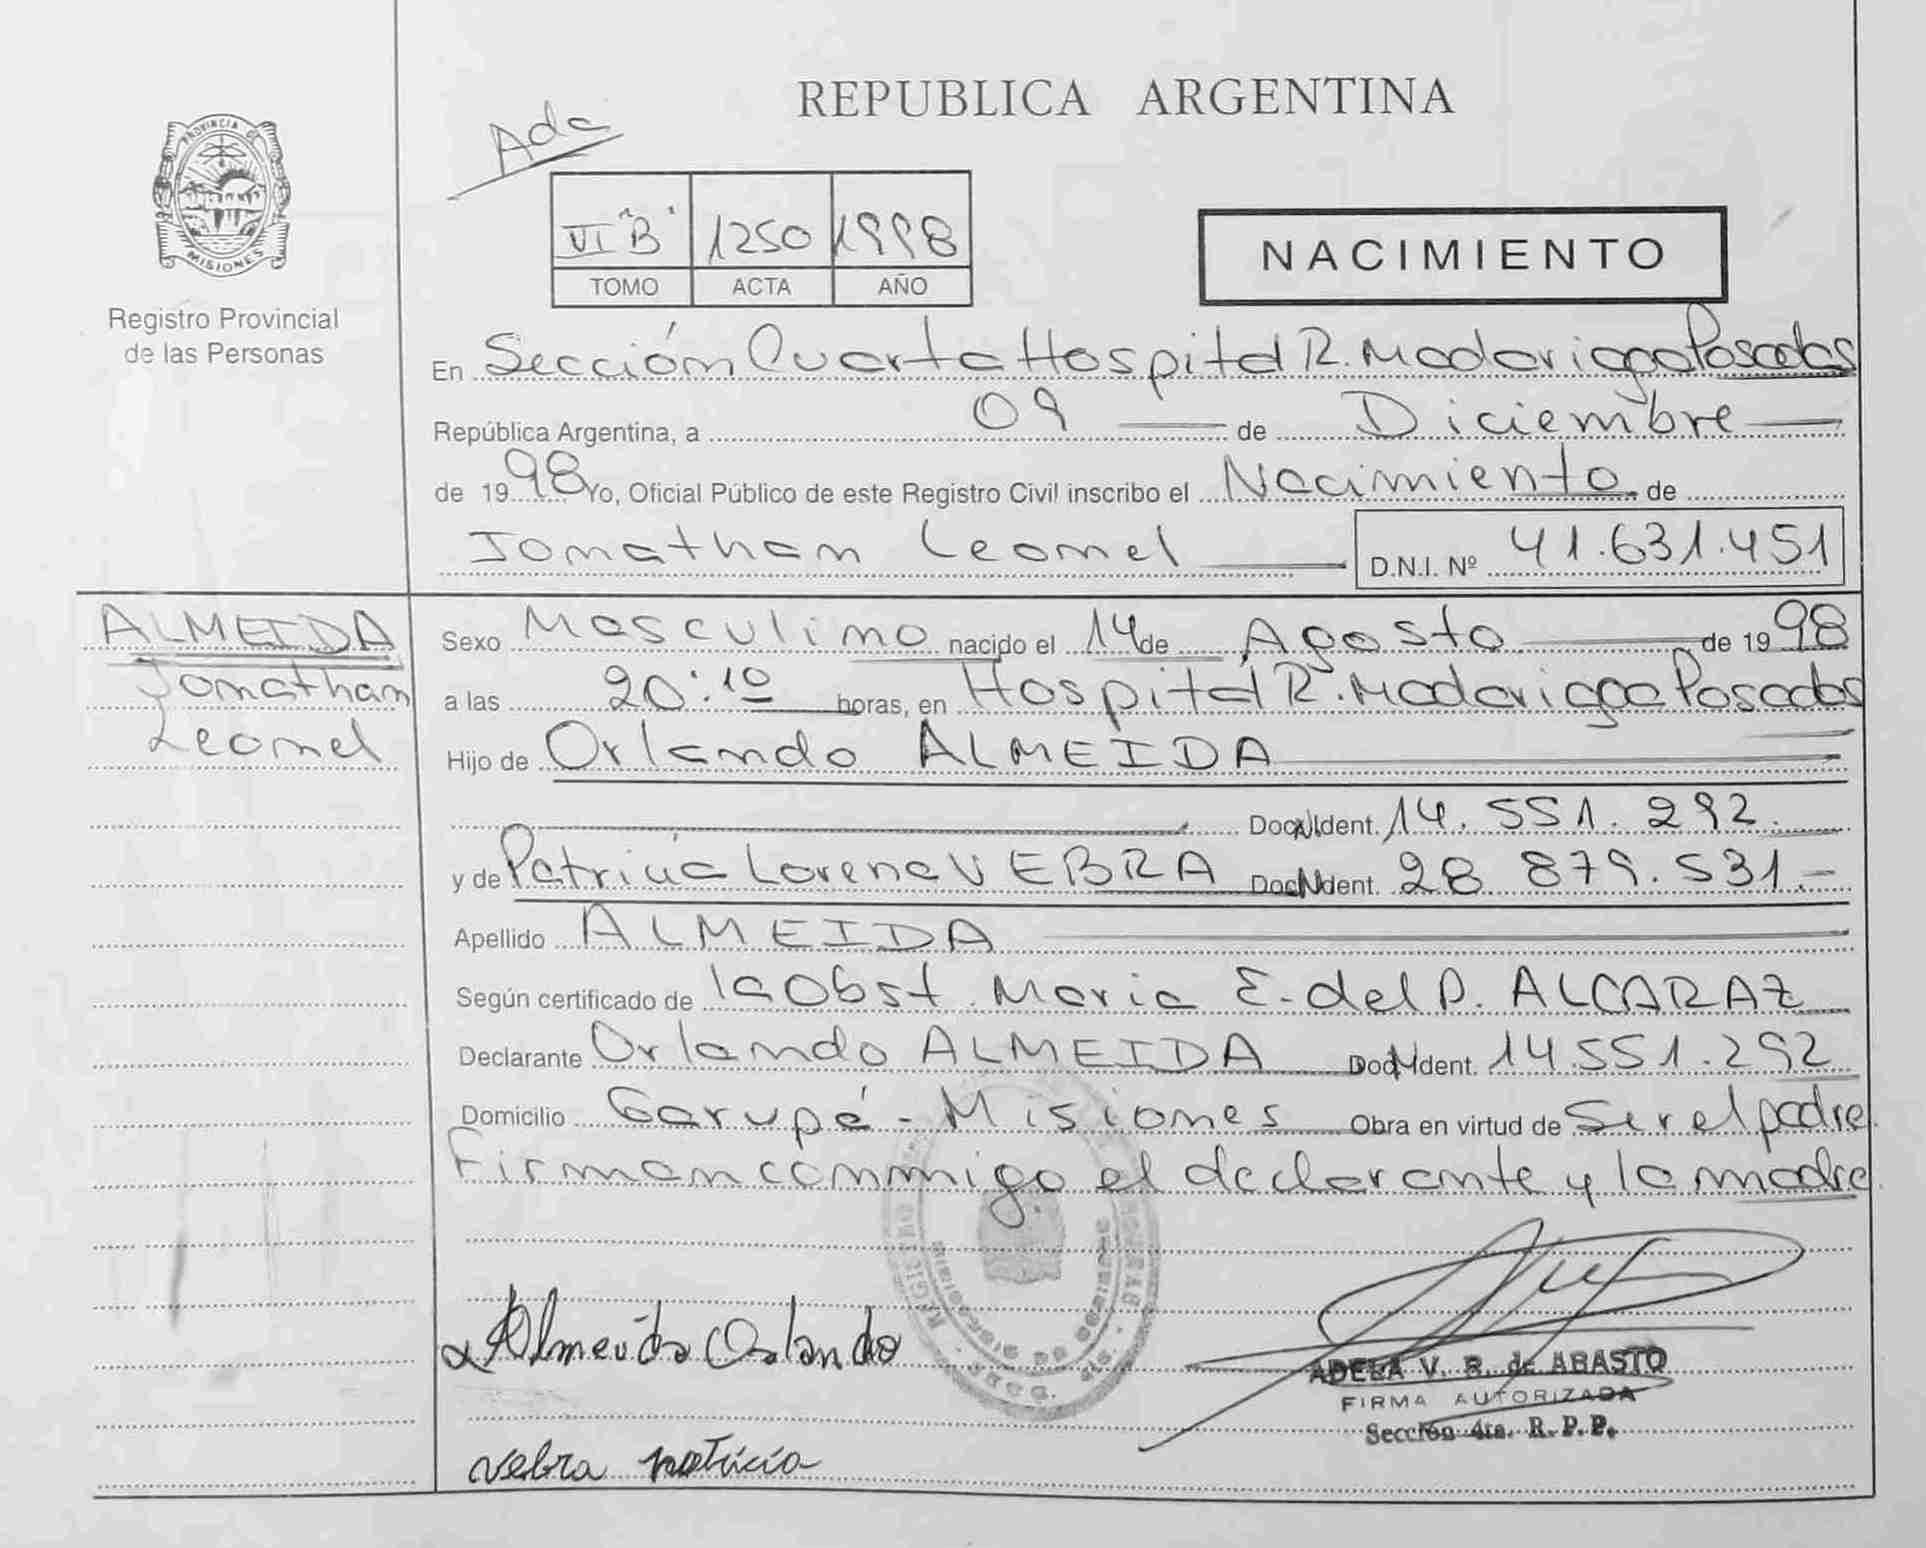 REPUBLICA ARGENTINA
Ada
PROVINCIA DE
MISIONES
Registro Provincial
de las Personas
VI "B" 1250 1998
TOMO ACTA AÑO
NACIMIENTO
En Sección Cuarta Hospital R. Madariaga Posadas
República Argentina, a 09 de Diciembre
de 1998 Yo, Oficial Público de este Registro Civil inscribo el Nacimiento de
Jonathan Leonel D.N.I. Nº 41.631.451
ALMEIDA
Jonathan
Leonel
Sexo Masculino nacido el 14 de Agosto de 1998
a las 20:10 horas, en Hospital R. Madariaga Posadas
Hijo de Orlando ALMEIDA
Doc. Ident. 14.551.292.
y de Patricia Lorena VEBRA Doc. Ident. 28 879.531.-
Apellido ALMEIDA
Según certificado de la Obst. Maria E. del P. ALCARAZ
Declarante Orlando ALMEIDA Doc. Ident. 14.551.292
Domicilio Garupá - Misiones Obra en virtud de Ser el padre
Firman conmigo el declarante y la madre
Almeida Orlando
ADELA V. B. de ABASTO
FIRMA AUTORIZADA
Sección 4ta. R.P.P.
vebra patricia